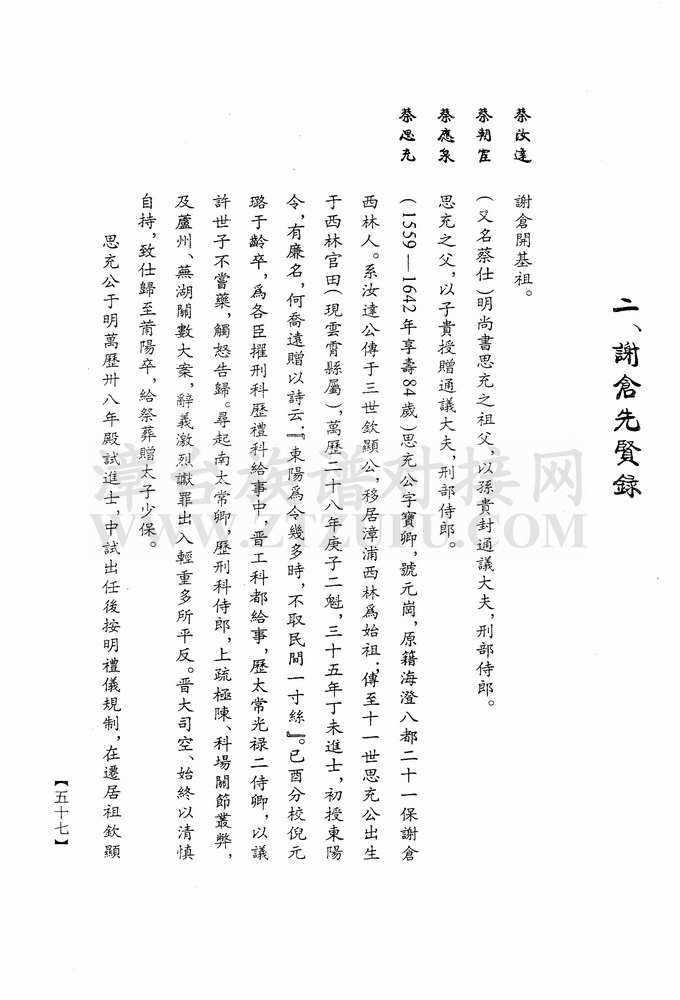 二、謝倉先賢錄
蔡汝達 謝倉開基祖。
蔡朝宦 （又名蔡仕）明尚書思充之祖父，以孫貴封通議大夫，刑部侍郎。
蔡應泉 思充之父，以子貴授贈通議大夫，刑部侍郎。
蔡思充 （1559—1642年享壽84歲）思充公字寶卿，號元崗，原籍海澄八都二十一保謝倉
西林人。系汝達公傳于三世欽顯公，移居漳浦西林爲始祖；傳至十一世思充公出生
于西林官田（現雲霄縣屬），萬歷二十八年庚子二魁，三十五年丁未進士，初授東陽
令，有廉名，何喬遠贈以詩云：『東陽爲令幾多時，不取民間一寸絲』。已酉分校倪元
璐于齡卒，爲各臣擢刑科歷禮科給事中，晋工科都給事，歷太常光禄二侍卿，以議
許世子不嘗藥，觸怒告歸。尋起南太常卿，歷刑科侍郎，上疏極陳、科場關節叢弊，
及蘆州、蕪湖關數大案，辭義激烈讞罪出入輕重多所平反。晋大司空、始終以清慎
自持，致仕歸至莆陽卒，給祭葬贈太子少保。
思充公于明萬歷卅八年殿試進士，中試出任後按明禮儀規制，在遷居祖欽顯
【五十七】
漳台族譜对接网
WWW.ZTZUPU.COM